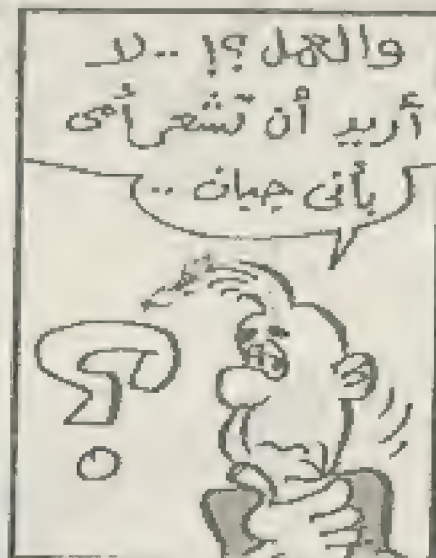 والعمل ؟! .. لا
أريد أن تشعر أمى
بأنى جبان ..
؟